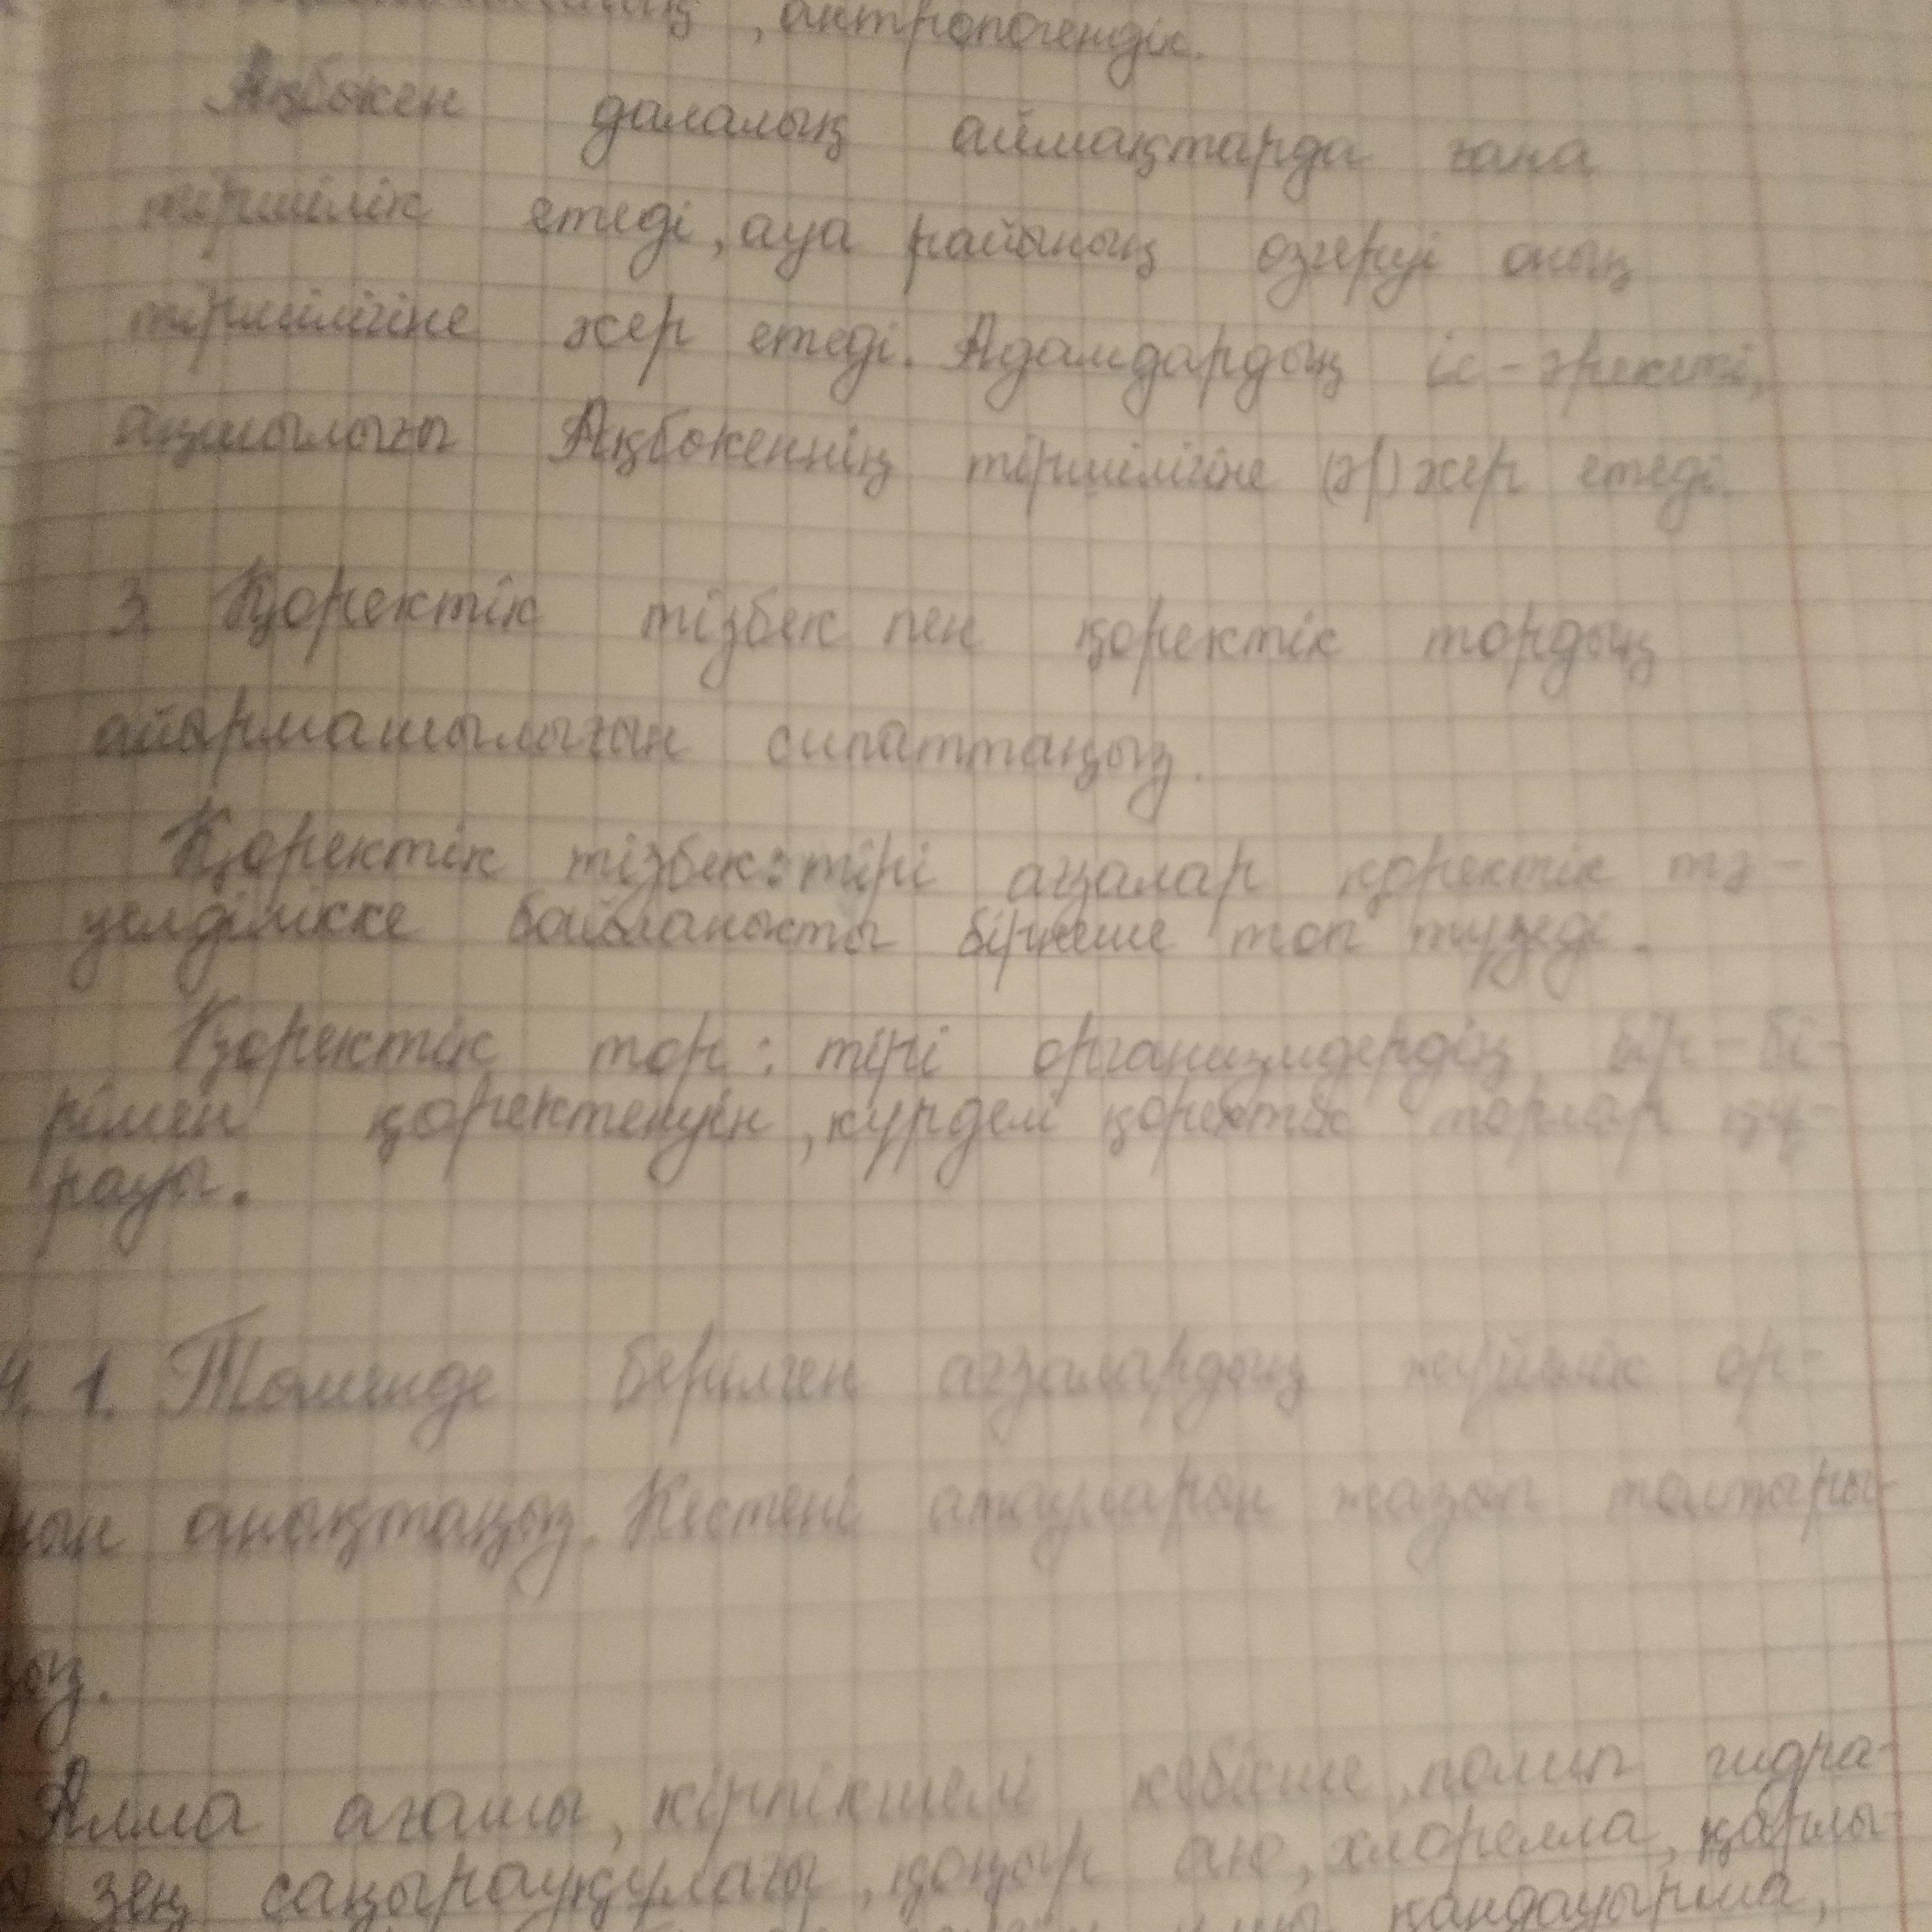 , антропогендік.
Ақбөкен далалық аймақтарда ғана
тіршілік етеді, ауа райының өзгеруі оның
тіршілігіне әсер етеді. Адамдардың іс-әрекеті,
аңшылығы Ақбөкеннің тіршілігіне (әр) әсер етеді.
3. Қоректік тізбек пен қоректік тордың
айырмашылығын сипаттаңыз.
Қоректік тізбек: тірі ағзалар қоректік тә-
уелділікке байланысты бірнеше топ түзеді.
Қоректік тор: тірі организмдердің бір-бі-
рімен қоректенуін, күрделі қоректік торлар құ-
рауы.
4. 1. Төменде берілген ағзалардың жүйелік ор-
нын анықтаңыз. Кестені атауларын жазып толтыры-
ңыз.
Алма ағашы, кірпікшелі кебісше, полип гидра-
, зең саңырауқұлағы, қоңыр аю, хлорелла, қарлы-
қандауырша,